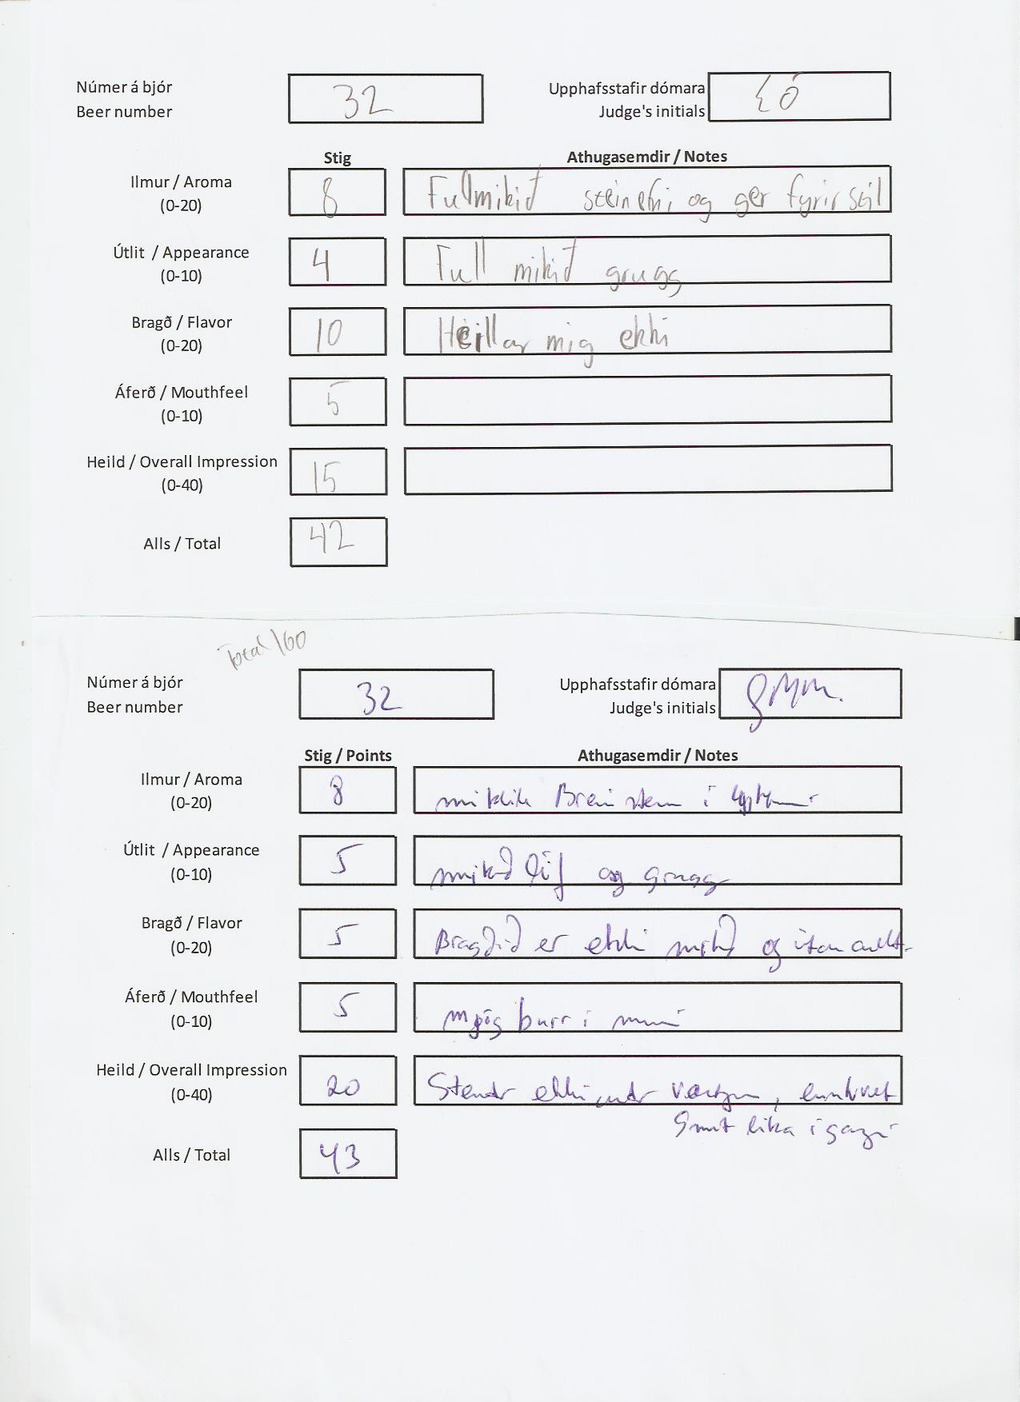 Númer á bjór
Beer number
32
Upphafsstafir dómara
Judge's initials
EÓ
Stig
Athugasemdir / Notes
Ilmur / Aroma
(0-20)
8
Fullmikið steinefni og ger fyrir stíl
Útlit / Appearance
(0-10)
4
Full mikið grugg
Bragð / Flavor
(0-20)
10
Heillar mig ekki
Áferð / Mouthfeel
(0-10)
5
Heild / Overall Impression
(0-40)
15
Alls / Total
42
Total /100
Númer á bjór
Beer number
32
Upphafsstafir dómara
Judge's initials
Stig / Points
Athugasemdir / Notes
Ilmur / Aroma
(0-20)
8
í
Útlit / Appearance
(0-10)
5
mikið líf og grugg
Bragð / Flavor
(0-20)
5
Bragðið er ekki mikð og
Áferð / Mouthfeel
(0-10)
5
mjög þurr í
Heild / Overall Impression
(0-40)
20
Stendr ekki undr
líka í
Alls / Total
43